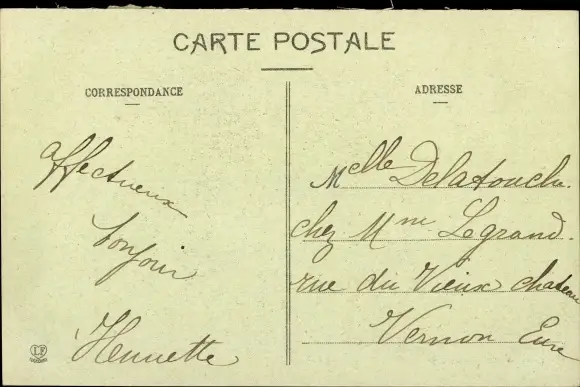 CARTE POSTALE
CORRESPONDANCE
affectueux
bonjour
Henriette
ADRESSE
Melle Delatouche.
chez Mme Legrand.
rue du Vieux chateau
Vernon Eure
LF